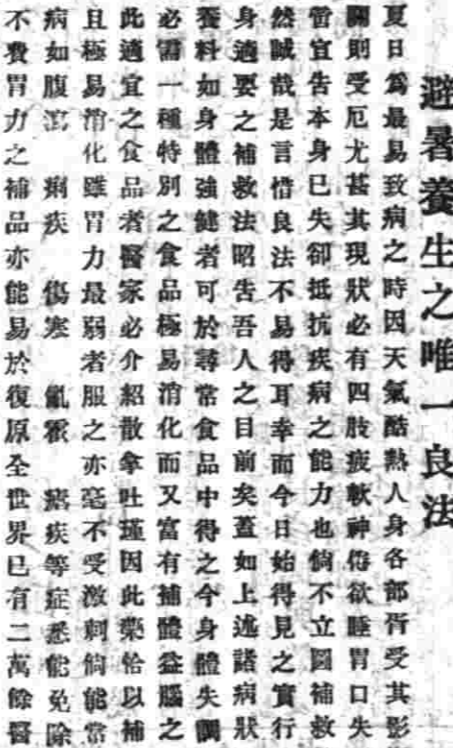 避暑養生之唯一良法
夏日為最易致病之時因天氣酷熱人身各部胥受其影
關則受厄尤甚其現狀必有四肢疲軟神倦欲睡胃口失
嘗宜告本身已失卻抵抗疾病之能力也倘不立圖補救
然誠哉是言惜良法不易得耳幸而今日始得見之實行
身適要之補救法昭告吾人之目前矣蓋如上述諸病狀
養料如身體強健者可於尋常食品中得之今身體失調
必需一種特別之食品極易消化而又富有補體益腦之
此適宜之食品者醫家必介紹散拿吐瑾因此藥恰以補
且極易消化雖胃力最弱者服之亦毫不受激刺倘能常
病如腹瀉 痢疾 傷寒 霍 瘧疾等症悉能免除
不費胃力之補品亦能易於復原全世界已有二萬餘醫